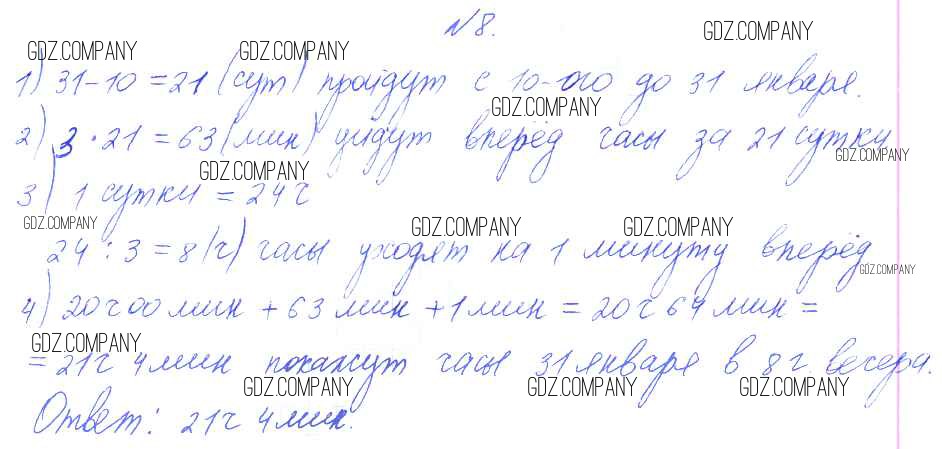 №8.
GDZ.COMPANY GDZ.COMPANY GDZ.COMPANY
1) 31-10=21 (сут) пройдут с 10-ого до 31 января.
GDZ.COMPANY
2) 3·21=63(мин) уйдут вперёд часы за 21 сутки
GDZ.COMPANY GDZ.COMPANY
3) 1 сутки = 24 ч
GDZ.COMPANY GDZ.COMPANY GDZ.COMPANY
24:3=8(ч) часы уходят на 1 минуту вперёд
GDZ.COMPANY
4) 20ч 00мин + 63мин + 1мин = 20ч 64мин =
GDZ.COMPANY
= 21ч 4мин покажут часы 31 января в 8 г вечера.
GDZ.COMPANY GDZ.COMPANY GDZ.COMPANY
Ответ: 21ч 4мин.